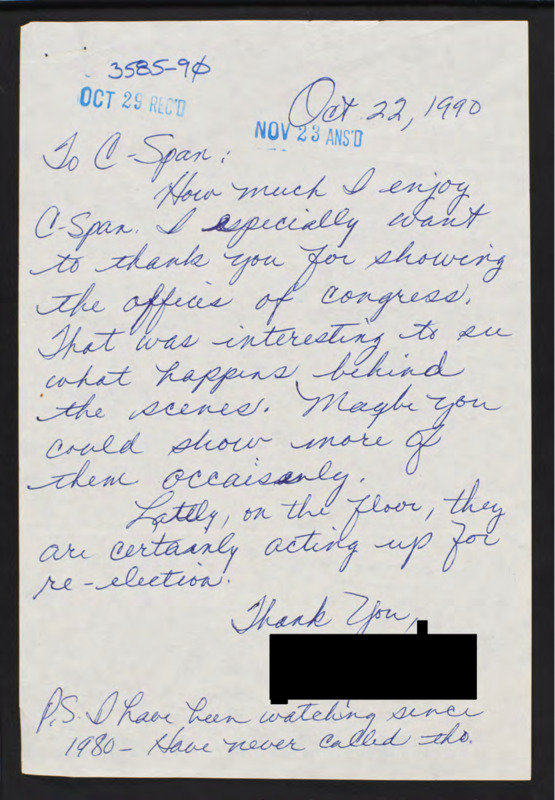 3585-90
OCT 29 REC'D
Oct 22, 1990
NOV 23 ANS'D
To C-Span:
How much I enjoy
C-Span. I especially want
to thank you for showing
the offices of congress.
That was interesting to see
what happens behind
the scenes. Maybe you
could show more of
them occaisonly.
Lattly, on the floor, they
are certainly acting up for
re-election.
Thank You,
P.S. I have been watching since
1980- Have never called tho.